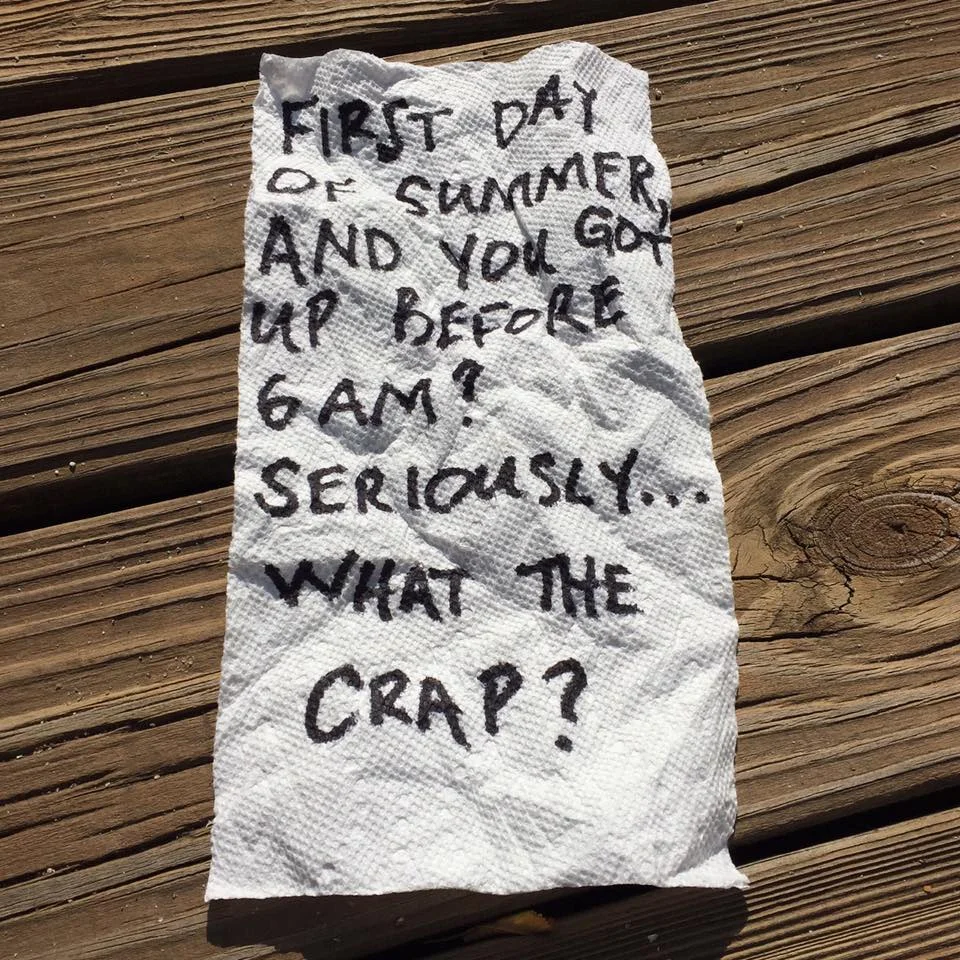 FIRST DAY
OF SUMMER,
AND YOU GOT
UP BEFORE
6 AM?
SERIOUSLY...
WHAT THE
CRAP?